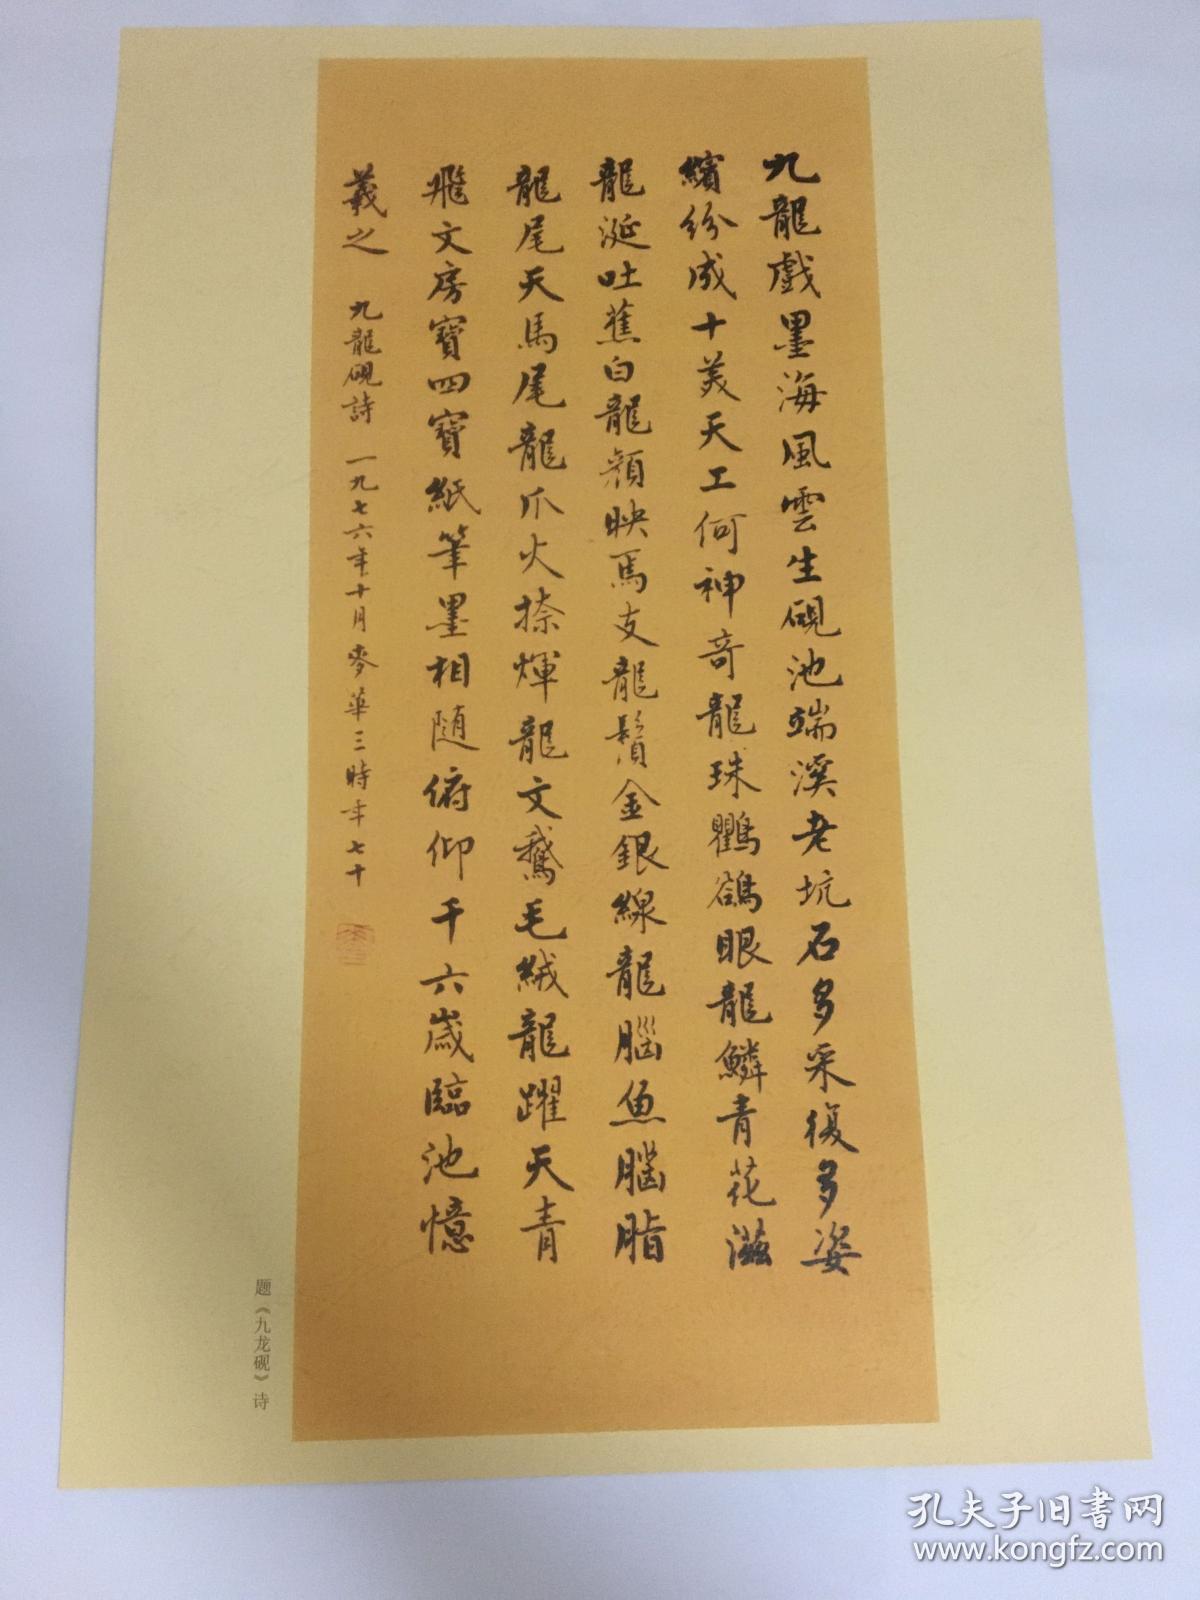 九龍戲墨海風雲生硯池端溪老坑石多采復多姿
繽紛成十美天工何神奇龍珠鸜鵒眼龍鱗青花滋
龍涎吐蕉白龍顏映馬支龍鬚金銀線龍腦魚腦脂
龍尾天馬尾龍爪火捺煇龍文鵝毛絨龍躍天青
飛文房寶四寶紙筆墨相随俯仰千六歲臨池憶
羲之 九龍硯詩 一九七六年十月麥華三時年七十
题《九龙砚》诗
孔夫子旧书网
www.kongfz.com